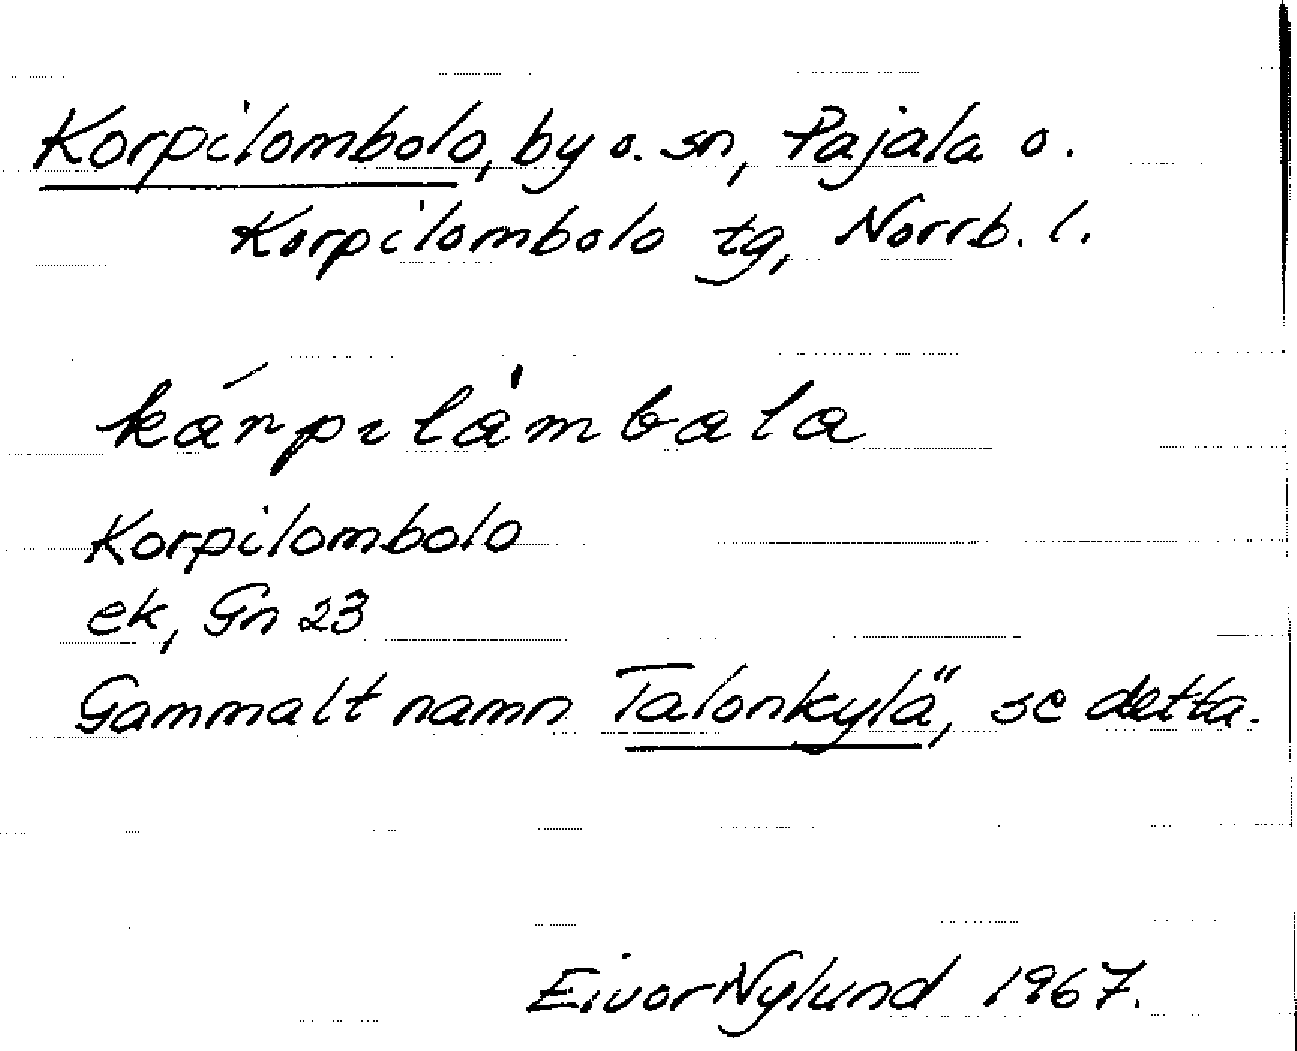 Korpilombolo, by o. sn, Pajala o.
Korpilombolo tg, Norrb. l.
kárpilàmbala
Korpilombolo
ek, Gn 23
Gammalt namn Talonkylä, se detta.
Eivor Nylund 1967.